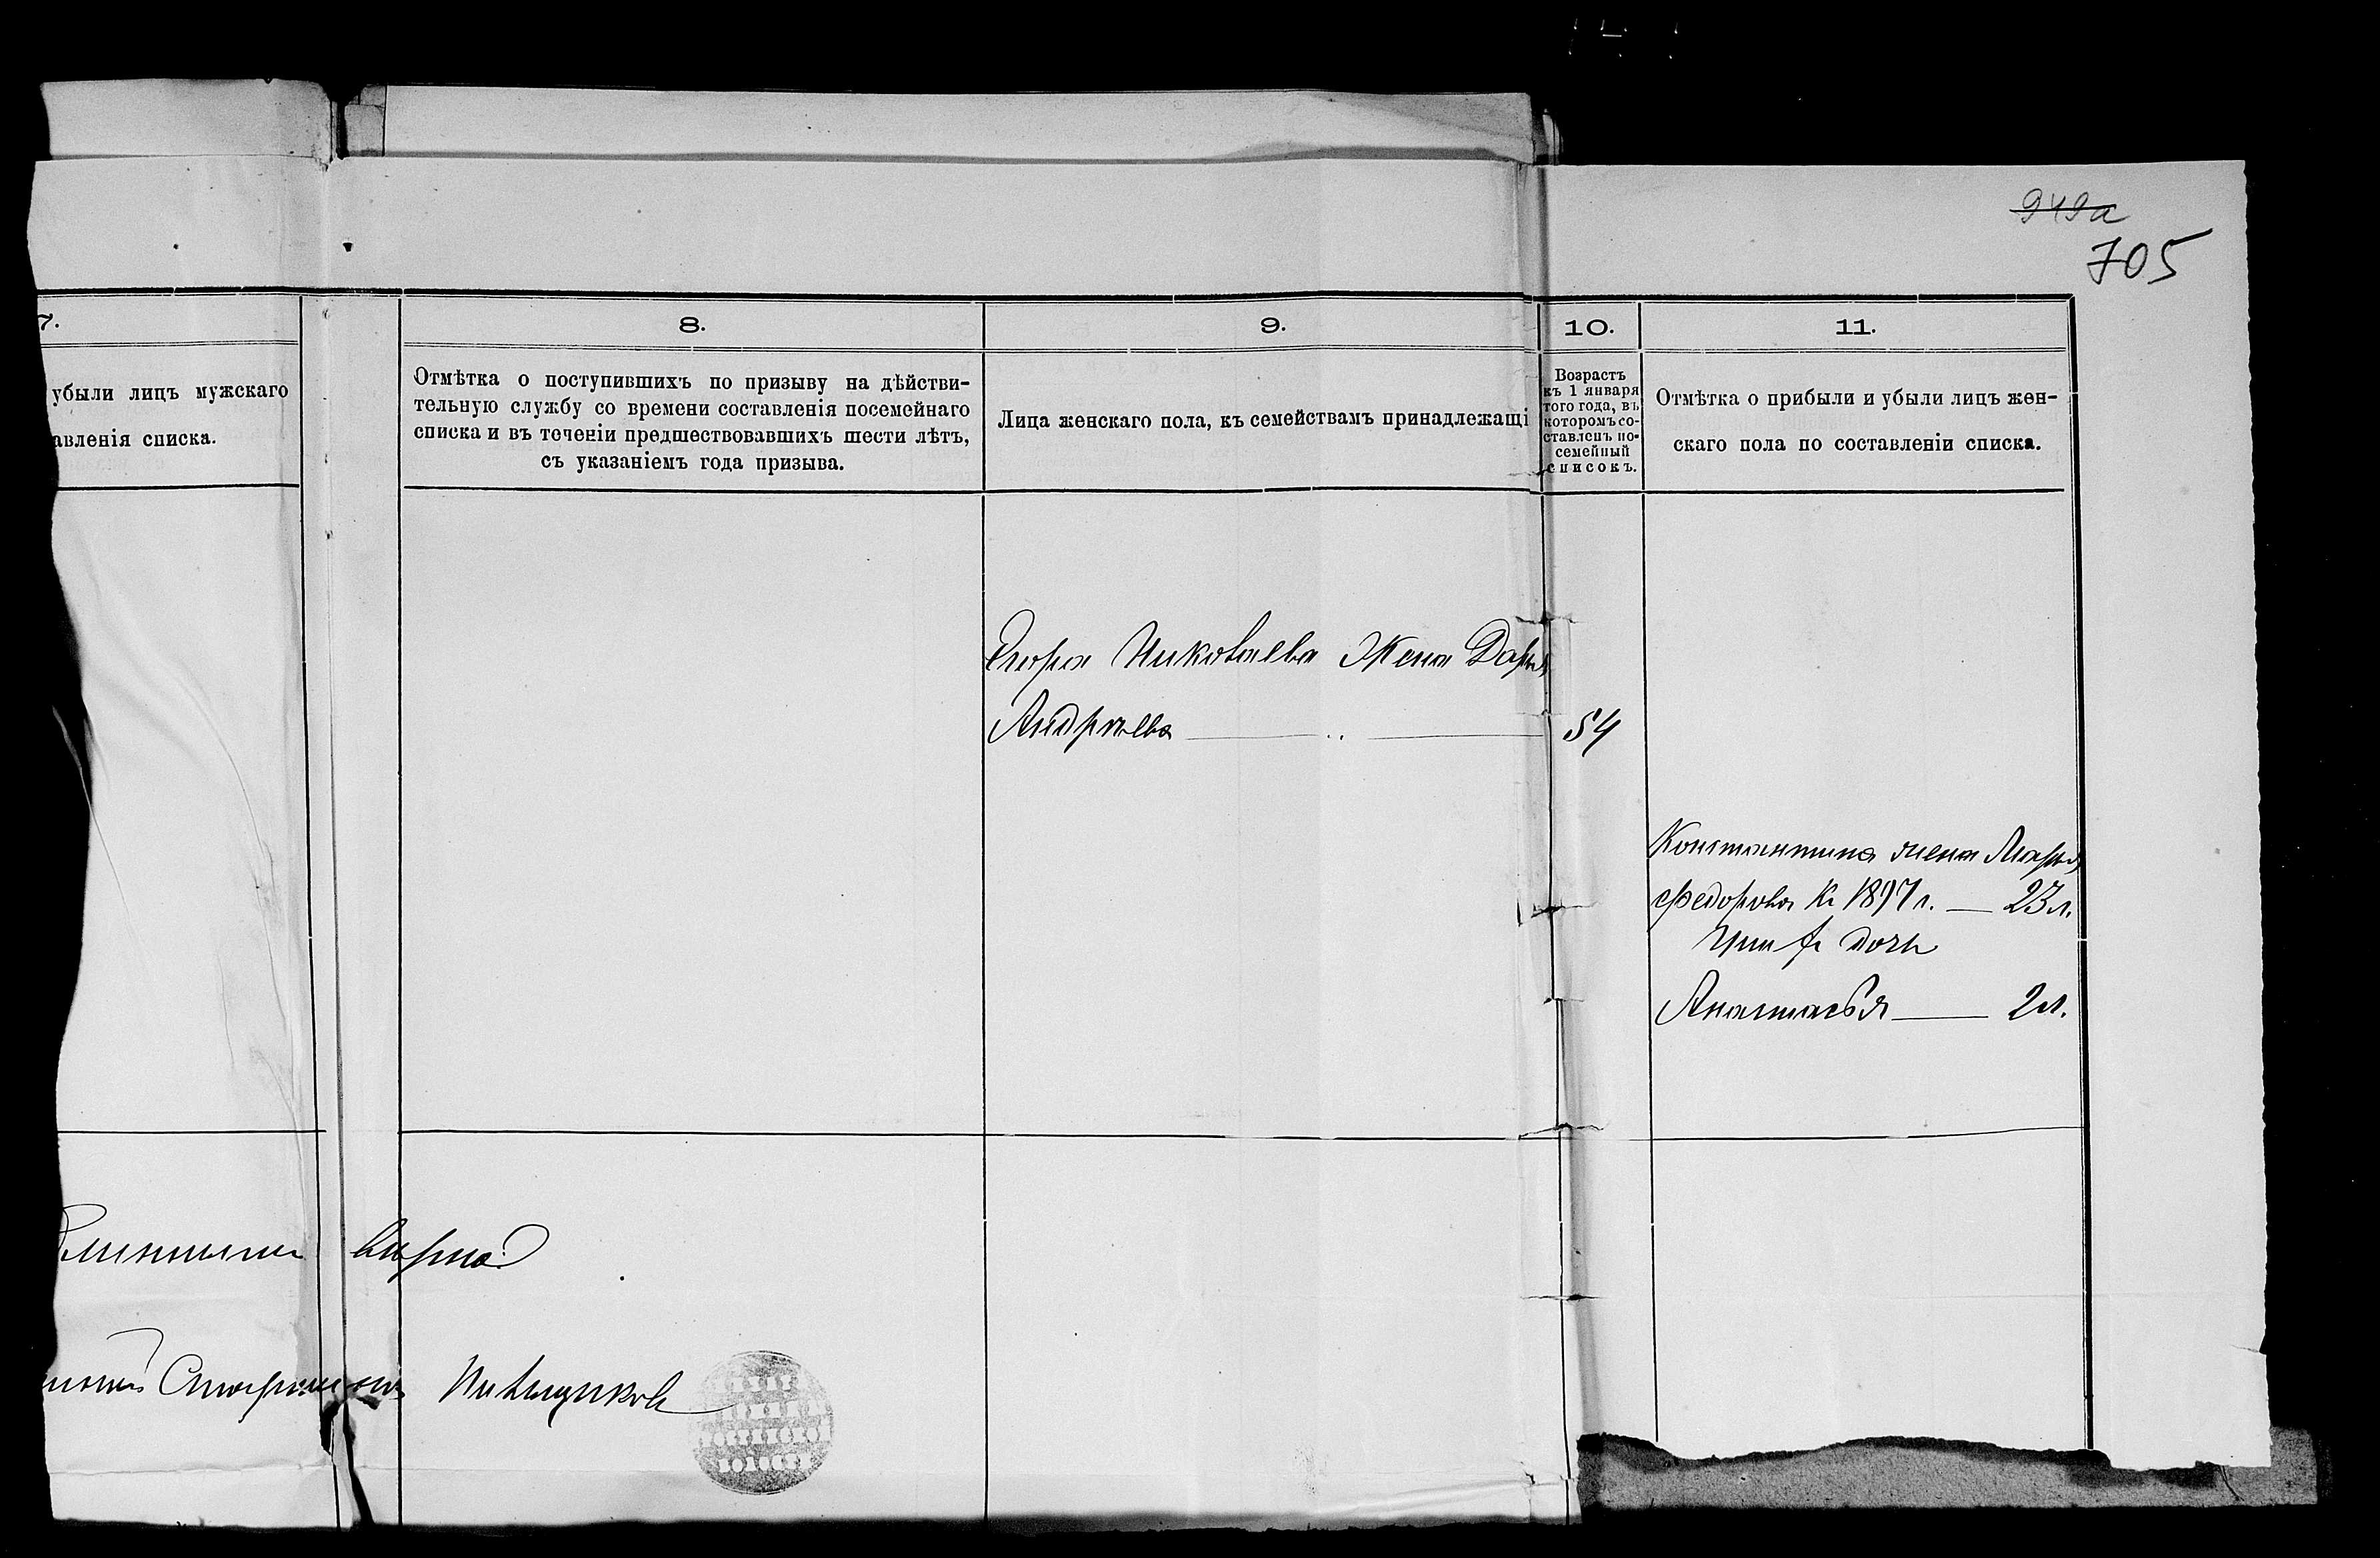 949а
705
7.
8.
9.
10.
11.
убыли лицъ мужскаго
авленія списка.
Отмѣтка о поступившихъ по призыву на дѣйстви-
тельную службу со времени составленія посемейнаго
списка и въ теченіи предшествовавшихъ шести лѣтъ,
съ указаніемъ года призыва.
Лица женскаго пола, къ семействамъ принадлежащі
Возрастъ
къ 1 января
того года, въ
которомъ со-
ставленъ по-
семейный
списокъ.
Отмѣтка о прибыли и убыли лицъ жен-
скаго пола по составленіи списка.
Николаева Жена Дарья
Андреева 54
Константина жена Марья
Федорова к 1897 г. — 23 л.
дочь
Анастасья — 2 л.
верно
Старшина
волости